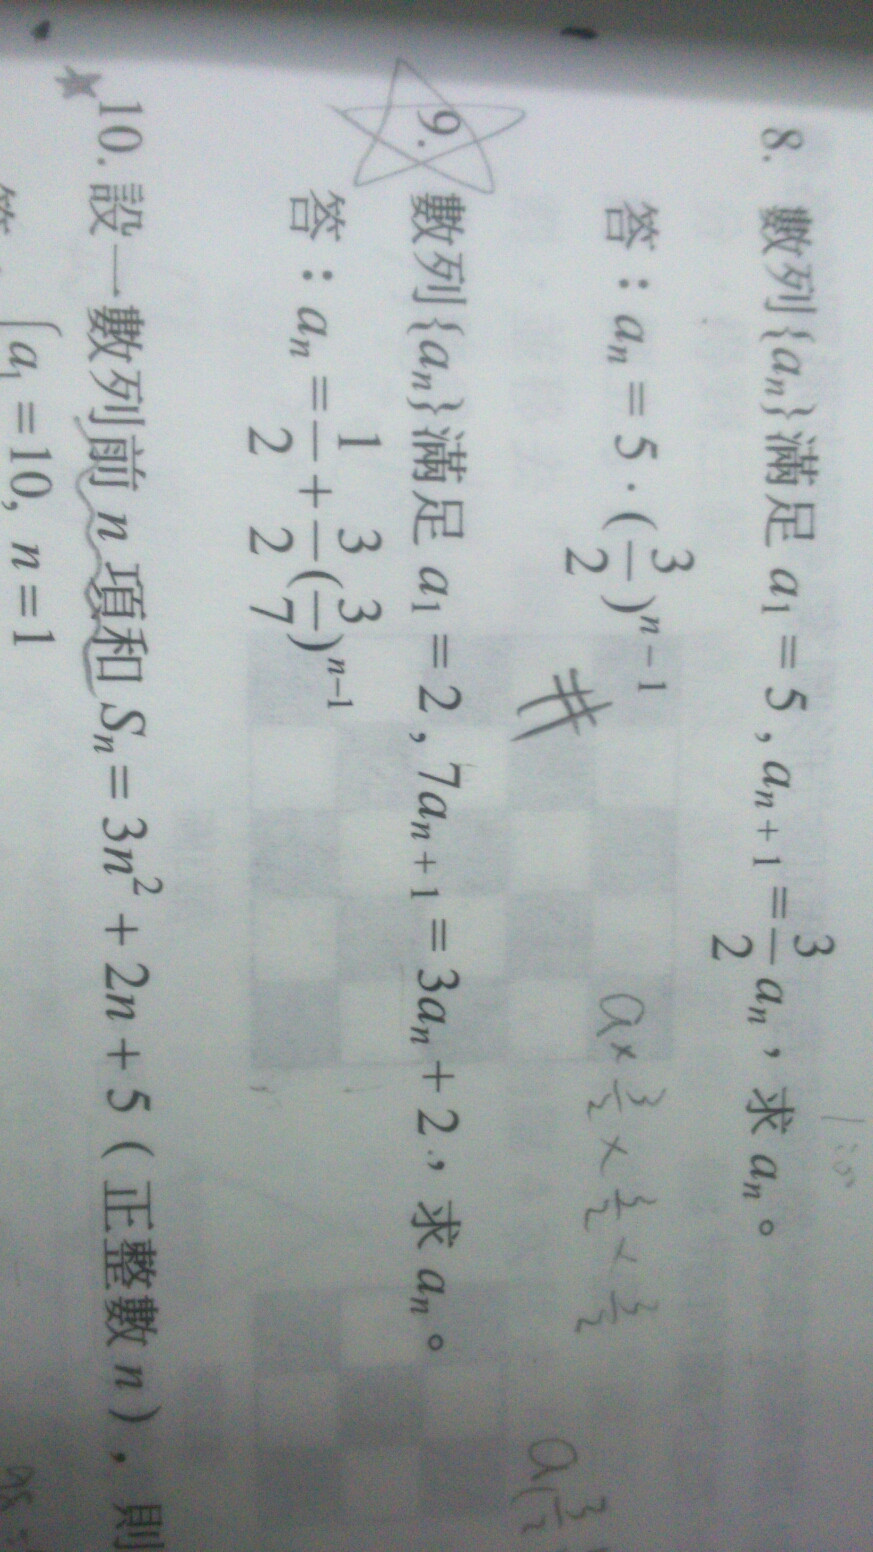 8. 數列{aₙ}滿足 a₁ = 5 , aₙ₊₁ = 3/2 aₙ，求 aₙ。
答：aₙ = 5 · (3/2)ⁿ⁻¹
a × 3/2 × 3/2 × 3/2
9. 數列{aₙ}滿足 a₁ = 2 , 7aₙ₊₁ = 3aₙ + 2，求 aₙ。
答：aₙ = 1/2 + 3/2 (3/7)ⁿ⁻¹
10. 設一數列前 n 項和 Sₙ = 3n² + 2n + 5 ( 正整數 n )，則
a₁ = 10, n = 1